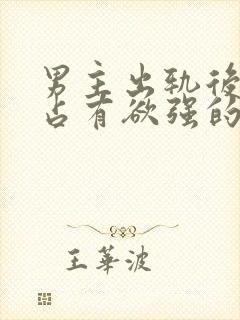 男主出轨後
占有欲强的
王華波